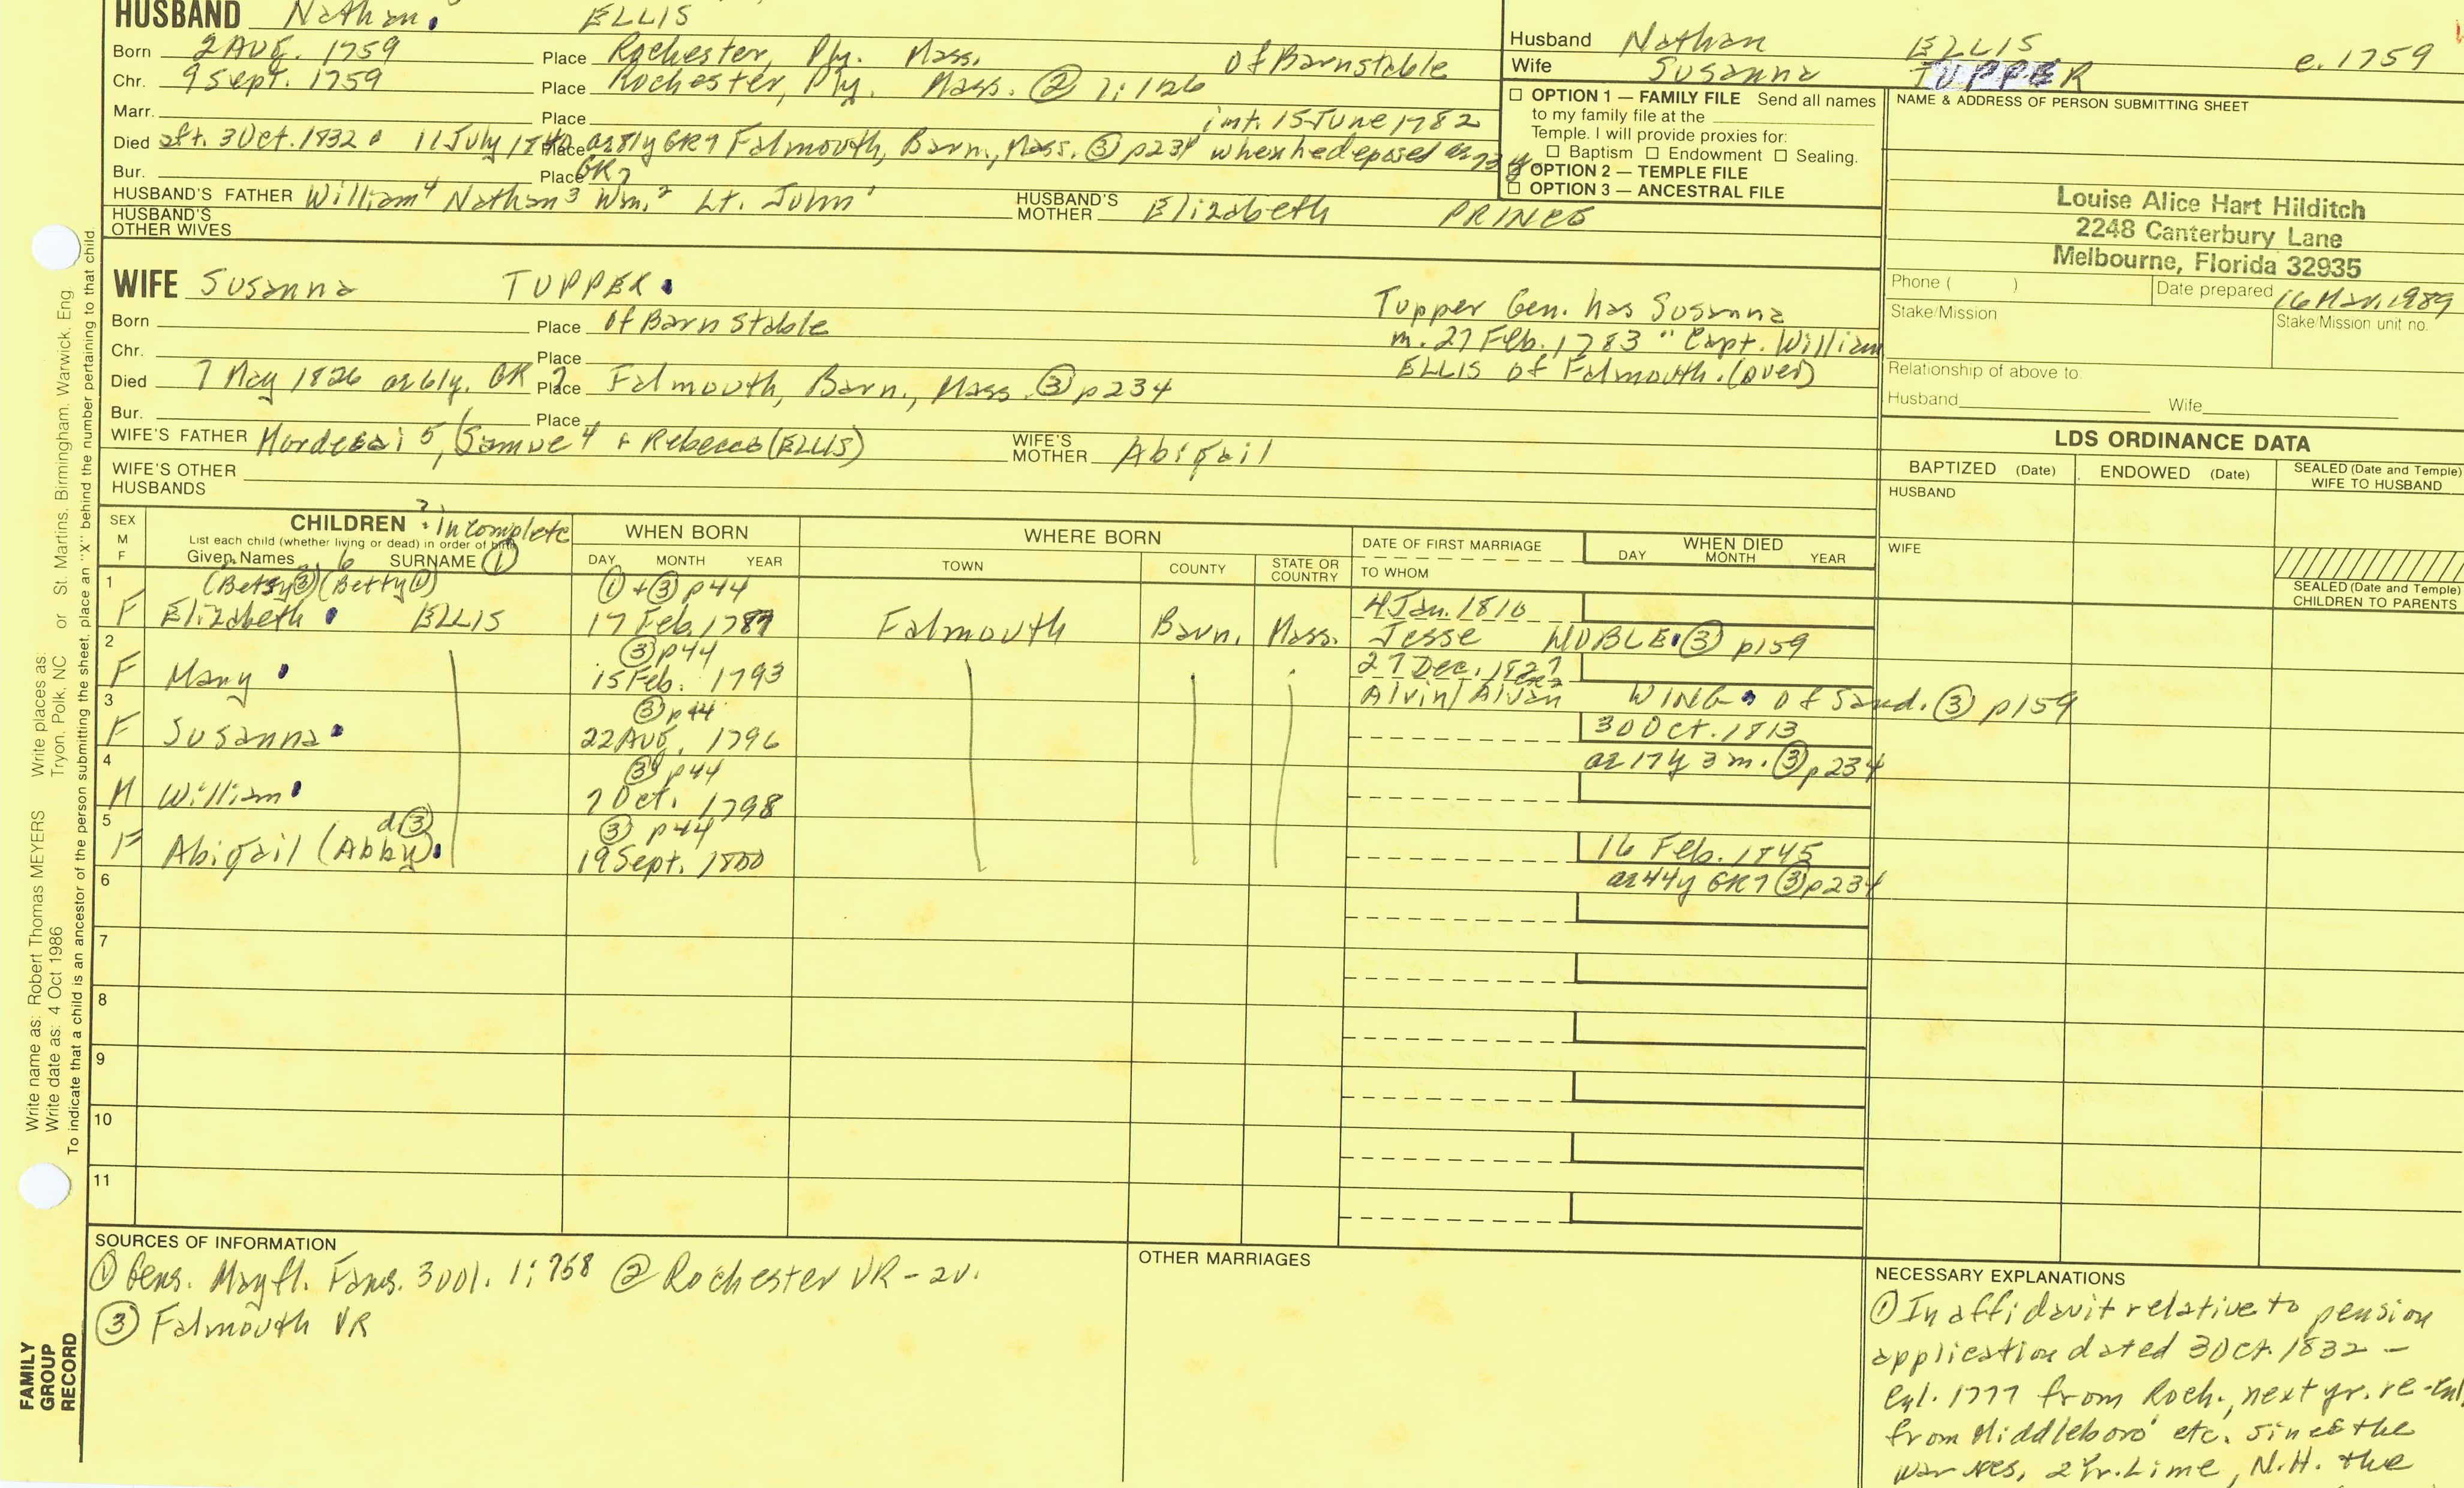 HUSBAND Nathan ELLIS
Born 2 Aug. 1759 Place Rochester, Ply. Mass. of Barnstable
Chr. 9 Sept. 1759 Place Rochester, Ply. Mass. ② 1:126
Marr. Place int. 15 June 1782
Died aft. 3 Oct. 1832 11 July Place ae 81y GR7 Falmouth, Barn., Mass. ③ p234 when he deposed ae 73 y
Bur. Place GR7
HUSBAND'S FATHER William⁴ Nathan³ Wm.² Lt. John¹ HUSBAND'S MOTHER Elizabeth PRINCE
HUSBAND'S OTHER WIVES
WIFE Susanna TUPPER
Born Place of Barnstable
Chr. Place
Died 7 May 1826 ae 61y. GR 7 Place Falmouth, Barn., Mass. ③ p234
Bur. Place
Tupper Gen. has Susanna
m. 27 Feb. 1783 "Capt. William
ELLIS of Falmouth. (over)
WIFE'S FATHER Mordecai 5, (Samue 4 + Rebecca (ELLIS) WIFE'S MOTHER Abigail
WIFE'S OTHER HUSBANDS
Husband Nathan ELLIS c. 1759
Wife Susanna TUPPER
☐ OPTION 1 — FAMILY FILE Send all names
to my family file at the
Temple. I will provide proxies for:
☐ Baptism ☐ Endowment ☐ Sealing.
OPTION 2 — TEMPLE FILE
☐ OPTION 3 — ANCESTRAL FILE
NAME & ADDRESS OF PERSON SUBMITTING SHEET
Louise Alice Hart Hilditch
2248 Canterbury Lane
Melbourne, Florida 32935
Phone ( ) Date prepared 16 Mar. 1989
Stake/Mission Stake/Mission unit no.
Relationship of above to:
Husband Wife
LDS ORDINANCE DATA
BAPTIZED (Date) ENDOWED (Date) SEALED (Date and Temple) WIFE TO HUSBAND
HUSBAND
WIFE
SEALED (Date and Temple)
CHILDREN TO PARENTS
SEX M F CHILDREN ? : incomplete WHEN BORN WHERE BORN DATE OF FIRST MARRIAGE WHEN DIED
List each child (whether living or dead) in order of birth
Given Names 6 SURNAME ① DAY MONTH YEAR TOWN COUNTY STATE OR COUNTRY TO WHOM DAY MONTH YEAR
1 (Betsy③)(Betty①) ① + ③ p44 4 Jan. 1810
F Elizabeth ELLIS 17 Feb. 1787 Falmouth Barn. Mass. Jesse NOBLE ③ p159
2 ③ p44 27 Dec. 1827
F Mary 15 Feb. 1793 Alvin/Alvan WING of Sand. ③ p159
3 ③ p44 30 Oct. 1813
F Susanna 22 Aug. 1796 ae 17y 3m. ③ p234
4 ③ p44
M William 7 Oct. 1798
5 d③ ③ p44 16 Feb. 1845
F Abigail (Abby) 19 Sept. 1800 ae 44y GR7 ③ p234
6
7
8
9
10
11
SOURCES OF INFORMATION
① Gens. Mayfl. Fams. 3 vol. 1:768 ② Rochester VR - 2v.
③ Falmouth VR
OTHER MARRIAGES
NECESSARY EXPLANATIONS
① In affidavit relative to pension
application dated 3 Oct. 1832 —
Enl. 1777 from Roch., next yr. re-enl.
from Middleboro' etc. Since the
war res. 2 yr. Lime, N.H. the
Write name as: Robert Thomas MEYERS Write places as: St. Martins, Birmingham, Warwick, Eng.
Write date as: 4 Oct 1986 Tryon, Polk, NC or
To indicate that a child is an ancestor of the person submitting the sheet, place an "X" behind the number pertaining to that child.
FAMILY
GROUP
RECORD